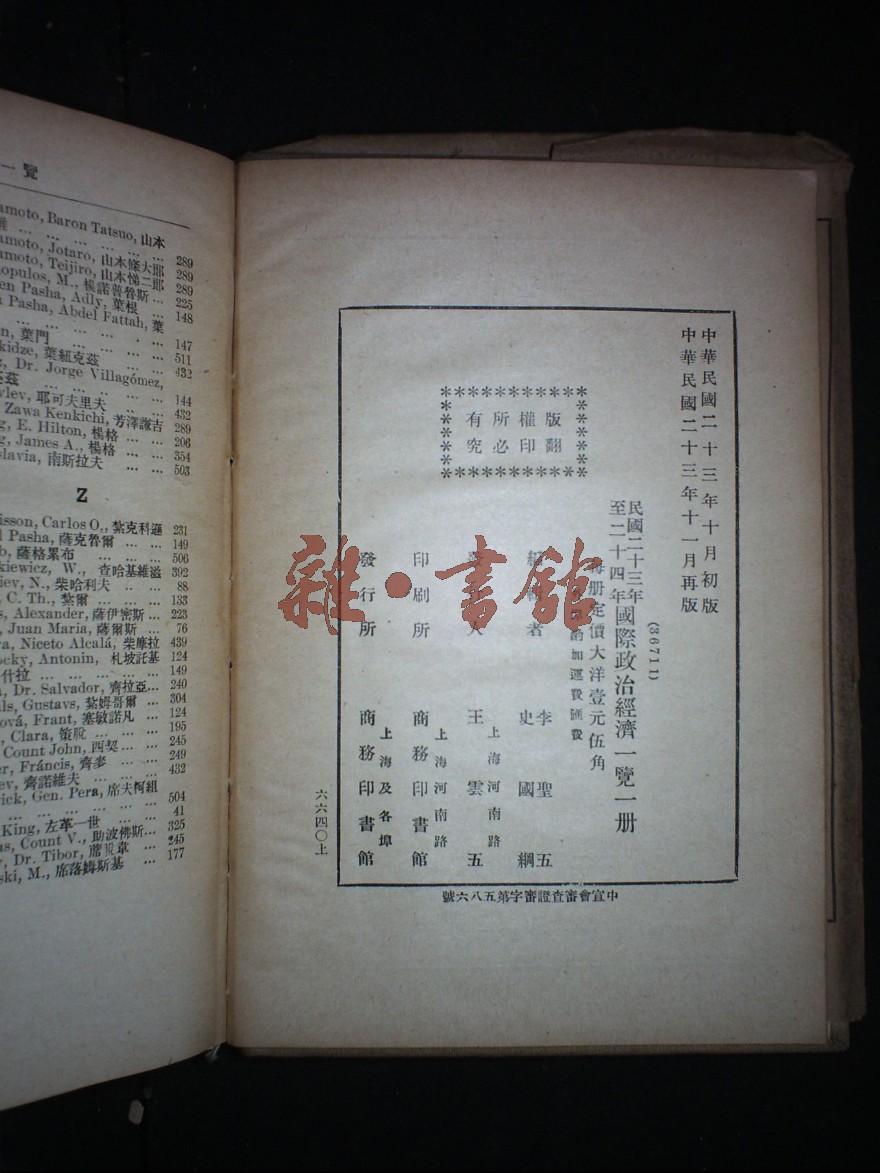 一覽
amoto, Baron Tatsuo, 山本
雄 … … … … … … 289
amoto, Jotaro, 山本條大郎 289
amoto, Teijiro, 山本悌二郎 289
nopulos, M., 楊諾普魯斯 … 225
en Pasha, Adly, 葉根 … 148
Pasha, Abdel Fattah, 葉
… … … … … … 147
n, 葉門 … … … … 511
kidze, 葉紐克茲 … … 432
, Dr. Jorge Villagómez,
茲 … … … … … 144
vlev, 耶可夫里夫 … … 432
Zawa Kenkichi, 芳澤謙吉 289
g, E. Hilton, 楊格 … … 206
g, James A., 楊格 … … 354
slavia, 南斯拉夫 … … 503
Z
isson, Carlos O., 紮克科遜 231
l Pasha, 薩克魯爾 … … 149
b, 薩格累布 … … … 506
kiewicz, W., 查哈基維滋 392
iev, N., 柴哈利夫 … … 88
, C. Th., 紮爾 … … … 133
s, Alexander, 薩伊密斯 … 223
, Juan Maria, 薩爾斯 … 76
ra, Niceto Alcalá, 柴摩拉 439
ocky, Antonin, 札坡託基 124
什拉 … … … … 149
a, Dr. Salvador, 齊拉亞… 240
als, Gustavs, 紮姆哥爾 … 304
nová, Frant, 塞敏諾凡 … 124
, Clara, 策脫 … … … 195
Count John, 西契… … 245
er, Fráncis, 齊麥 … … 249
ev, 齊諾維夫 … … … 432
rick, Gen. Pera, 席夫柯組
… … … … … … 504
King, 左革一世 … … 41
as, Count V., 助波佛斯… 325
y, Dr. Tibor, 席章 … 245
ski, M., 席落姆斯基 … 177
中華民國二十三年十月初版
中華民國二十三年十一月再版
(36711)
民國二十三年至二十四年國際政治經濟一覽一册
每册定價大洋壹元伍角
外埠酌加運費匯費
版權所有
翻印必究
編輯者 李聖五 史國綱
發行人 王雲五 上海河南路
印刷所 商務印書館 上海河南路
發行所 商務印書館 上海及各埠
六六四〇上
中宣會審查證審字第五八六號
雜·書館